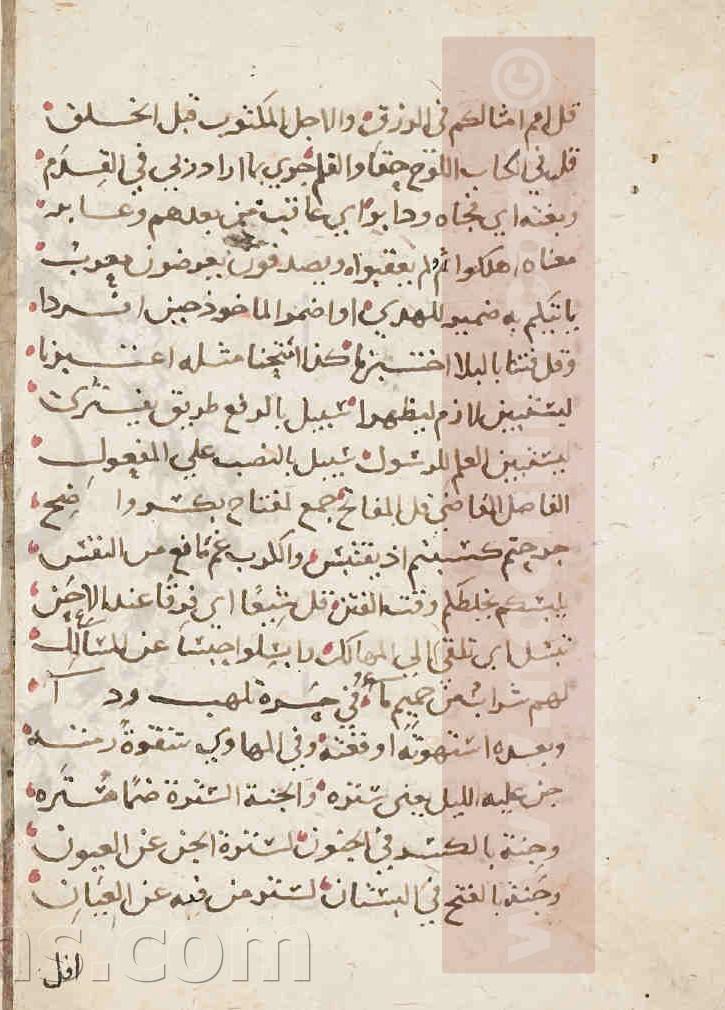 قل امم امثالكم في الرزق والاجل المكتوب قبل الخلق
قلت في الكتاب اللوح حقا والقلم جري بما اراد ربي في القدم
وبغتة اي فجأه ودابر اي عاقبة من بعدهم وغابر
معناه اهلكوا فلم يعقبوا ويصدفون يعرضون
ياتيكم به ضمير للهدي او اضمروا الماخوذ حين افردا
وقل فتنا بالبلا اختبرنا كذا امتحنا مثله اعتبرنا
ليستبين لازم ليظهرا سبيل بالرفع طريق
ليستبين العلم للرسول سبيل بالنصب علي المفعول
الفاصل القاضي قل المفاتح جمع لمفتاح بكسر واضح
جرحتم كسبتم اذ يقتبس والكرب غم مانع من النفس
يلبسكم يخلطكم وفتنه الفتن قل شيعا اي فرقا عند الاحن
تبسل اي تلقي الي المهالك وابسلوا حبسا عن المسالك
لهم شراب من حميم ماء في حره تلهب ورد
وبعده استهوته اوقعته وفي المهاوي
جن عليه الليل يعني ستره والجنة السترة ضما
وجنة بالكسر في الجنون لسترة الجن عن العيون
وجنة بالفتح في البستان لستر من فيه عن العيان
افل
www.
ns.com
©